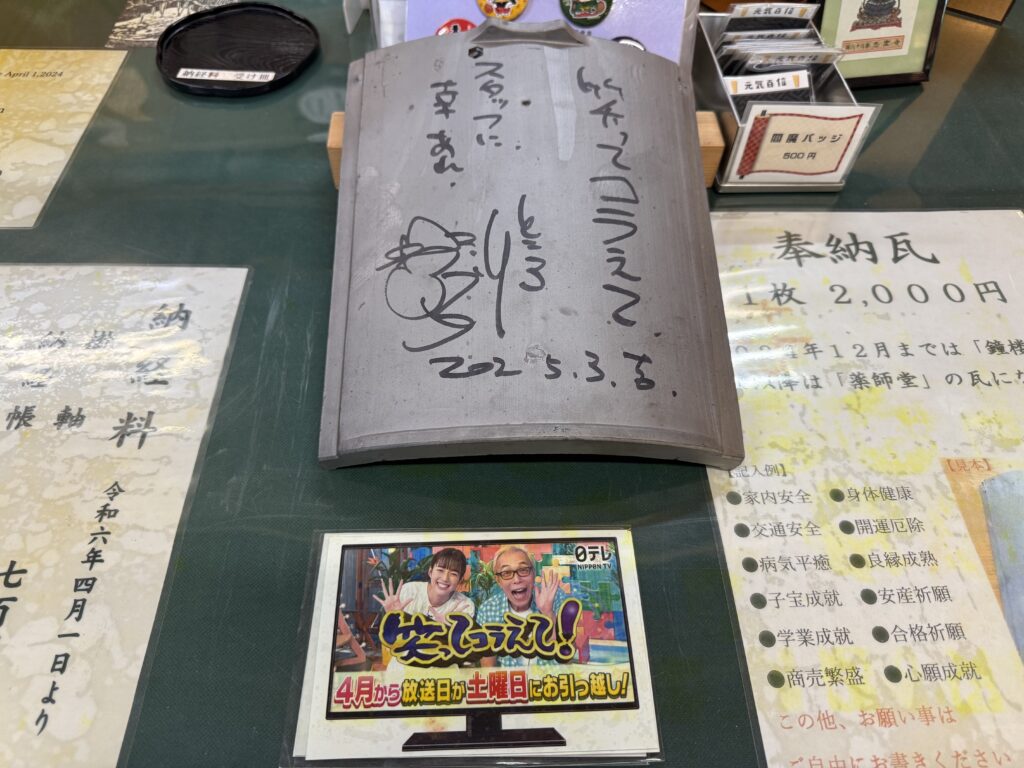 April 1,2024
納経料 受け皿
元気百倍
元気百倍
閻魔バッジ
500円
笑ってコラえて
スタッフに
幸あれ
ところ
2025.3.吉
奉納瓦
1枚 2,000円
年12月までは「鐘楼
は「薬師堂」の瓦にな
【記入例】
【見本】
●家内安全 ●身体健康
●交通安全 ●開運厄除
●病気平癒 ●良縁成熟
●子宝成就 ●安産祈願
●学業成就 ●合格祈願
●商売繁盛 ●心願成就
この他、お願い事は
ご自由にお書きください
納経料
軸
帳
令和六年四月一日より
七百
日テレ
NIPPON TV
笑ってコラえて!
4月から放送日が土曜日にお引っ越し!